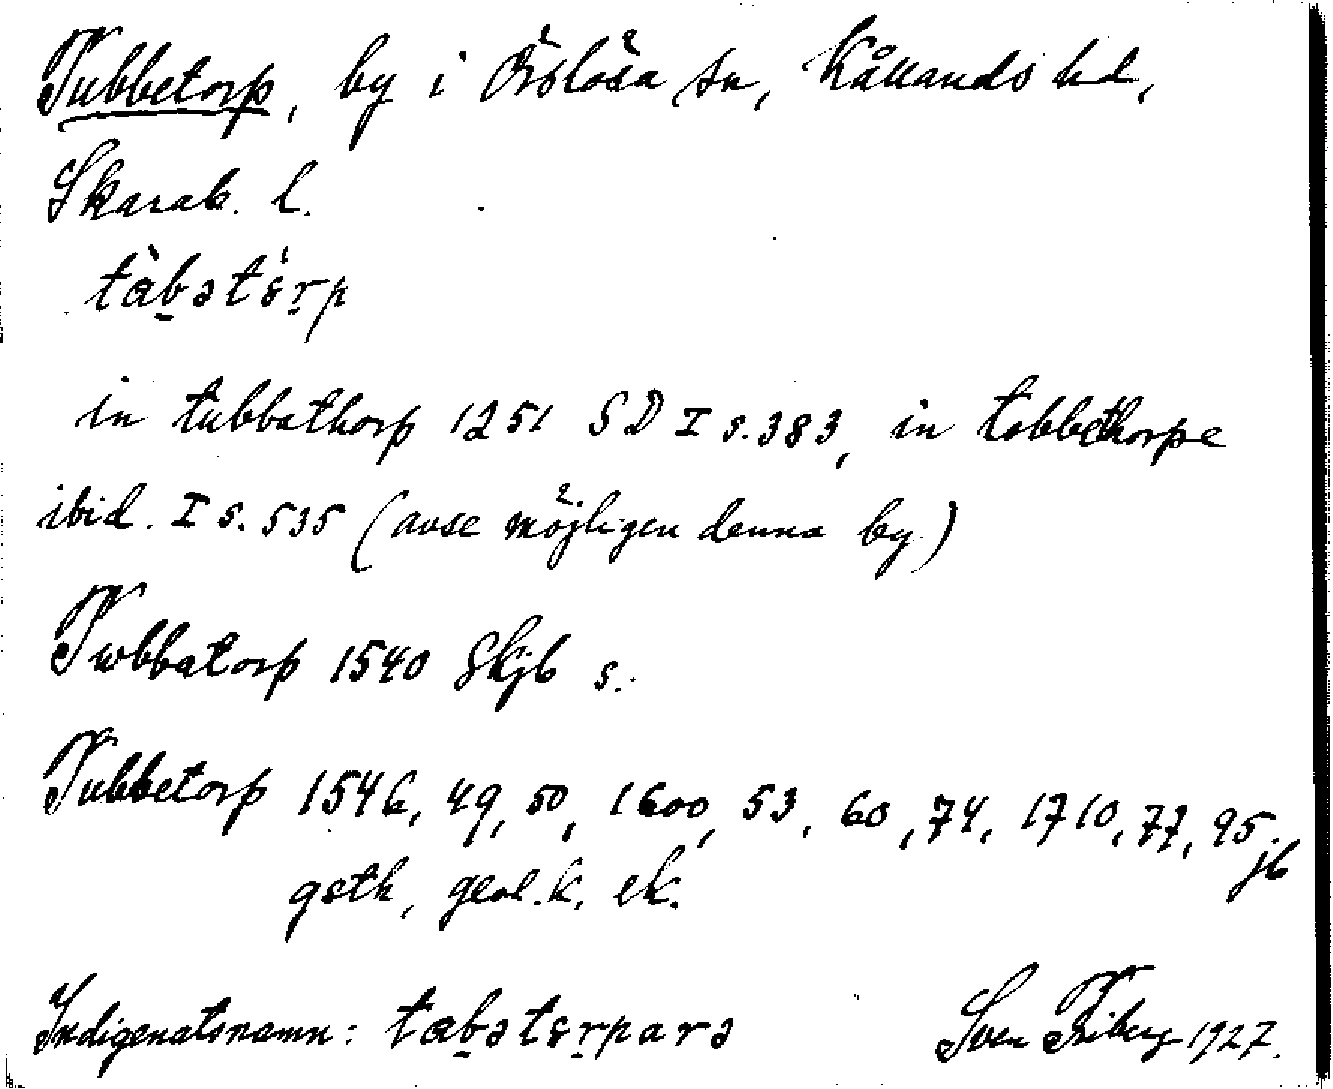 Tubbetorp, by i Örslösa sn, Kållands hd,
Skarab. l.
tàbətə̀rp
in tubbathorp 1251 SD I s. 383, in tobbethorpe
ibid. I s. 535 (avse möjligen denna by)
Twbbatorp 1540 Skjb s.
Tubbetorp 1546, 49, 50, 1600, 53, 60, 74, 1710, 77, 95 jb
gsth, geol. k. ek.
Indigenatsnamn: tabətərparə
Sven Friberg 1927.